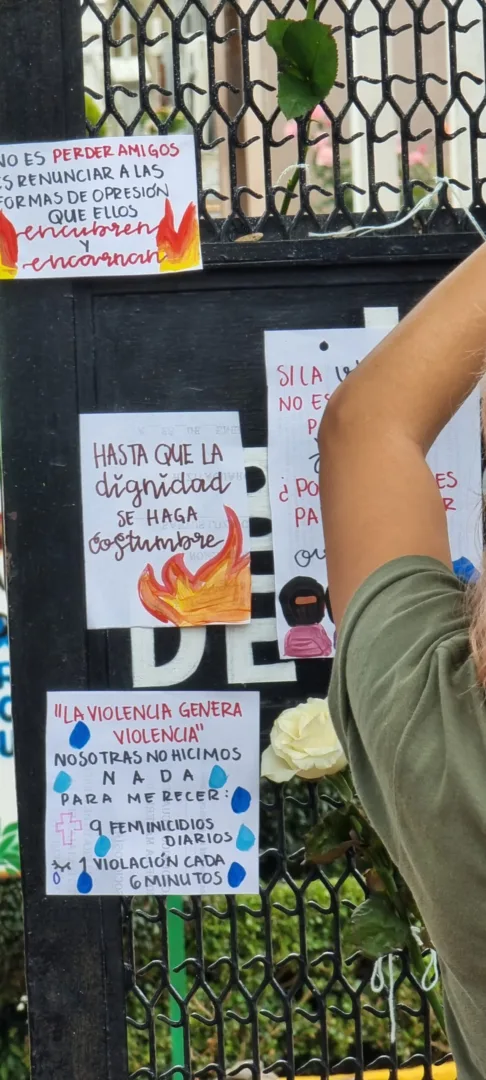 NO ES PERDER AMIGOS
ES RENUNCIAR A LAS
FORMAS DE OPRESIÓN
QUE ELLOS
encubren
Y
encarnan
SI LA
NO ES
¿ PO ES
PA R
HASTA QUE LA
dignidad
SE HAGA
costumbre
DE
"LA VIOLENCIA GENERA
VIOLENCIA"
NOSOTRAS NO HICIMOS
NADA
PARA MERECER:
9 FEMINICIDIOS
DIARIOS
1 VIOLACIÓN CADA
6 MINUTOS